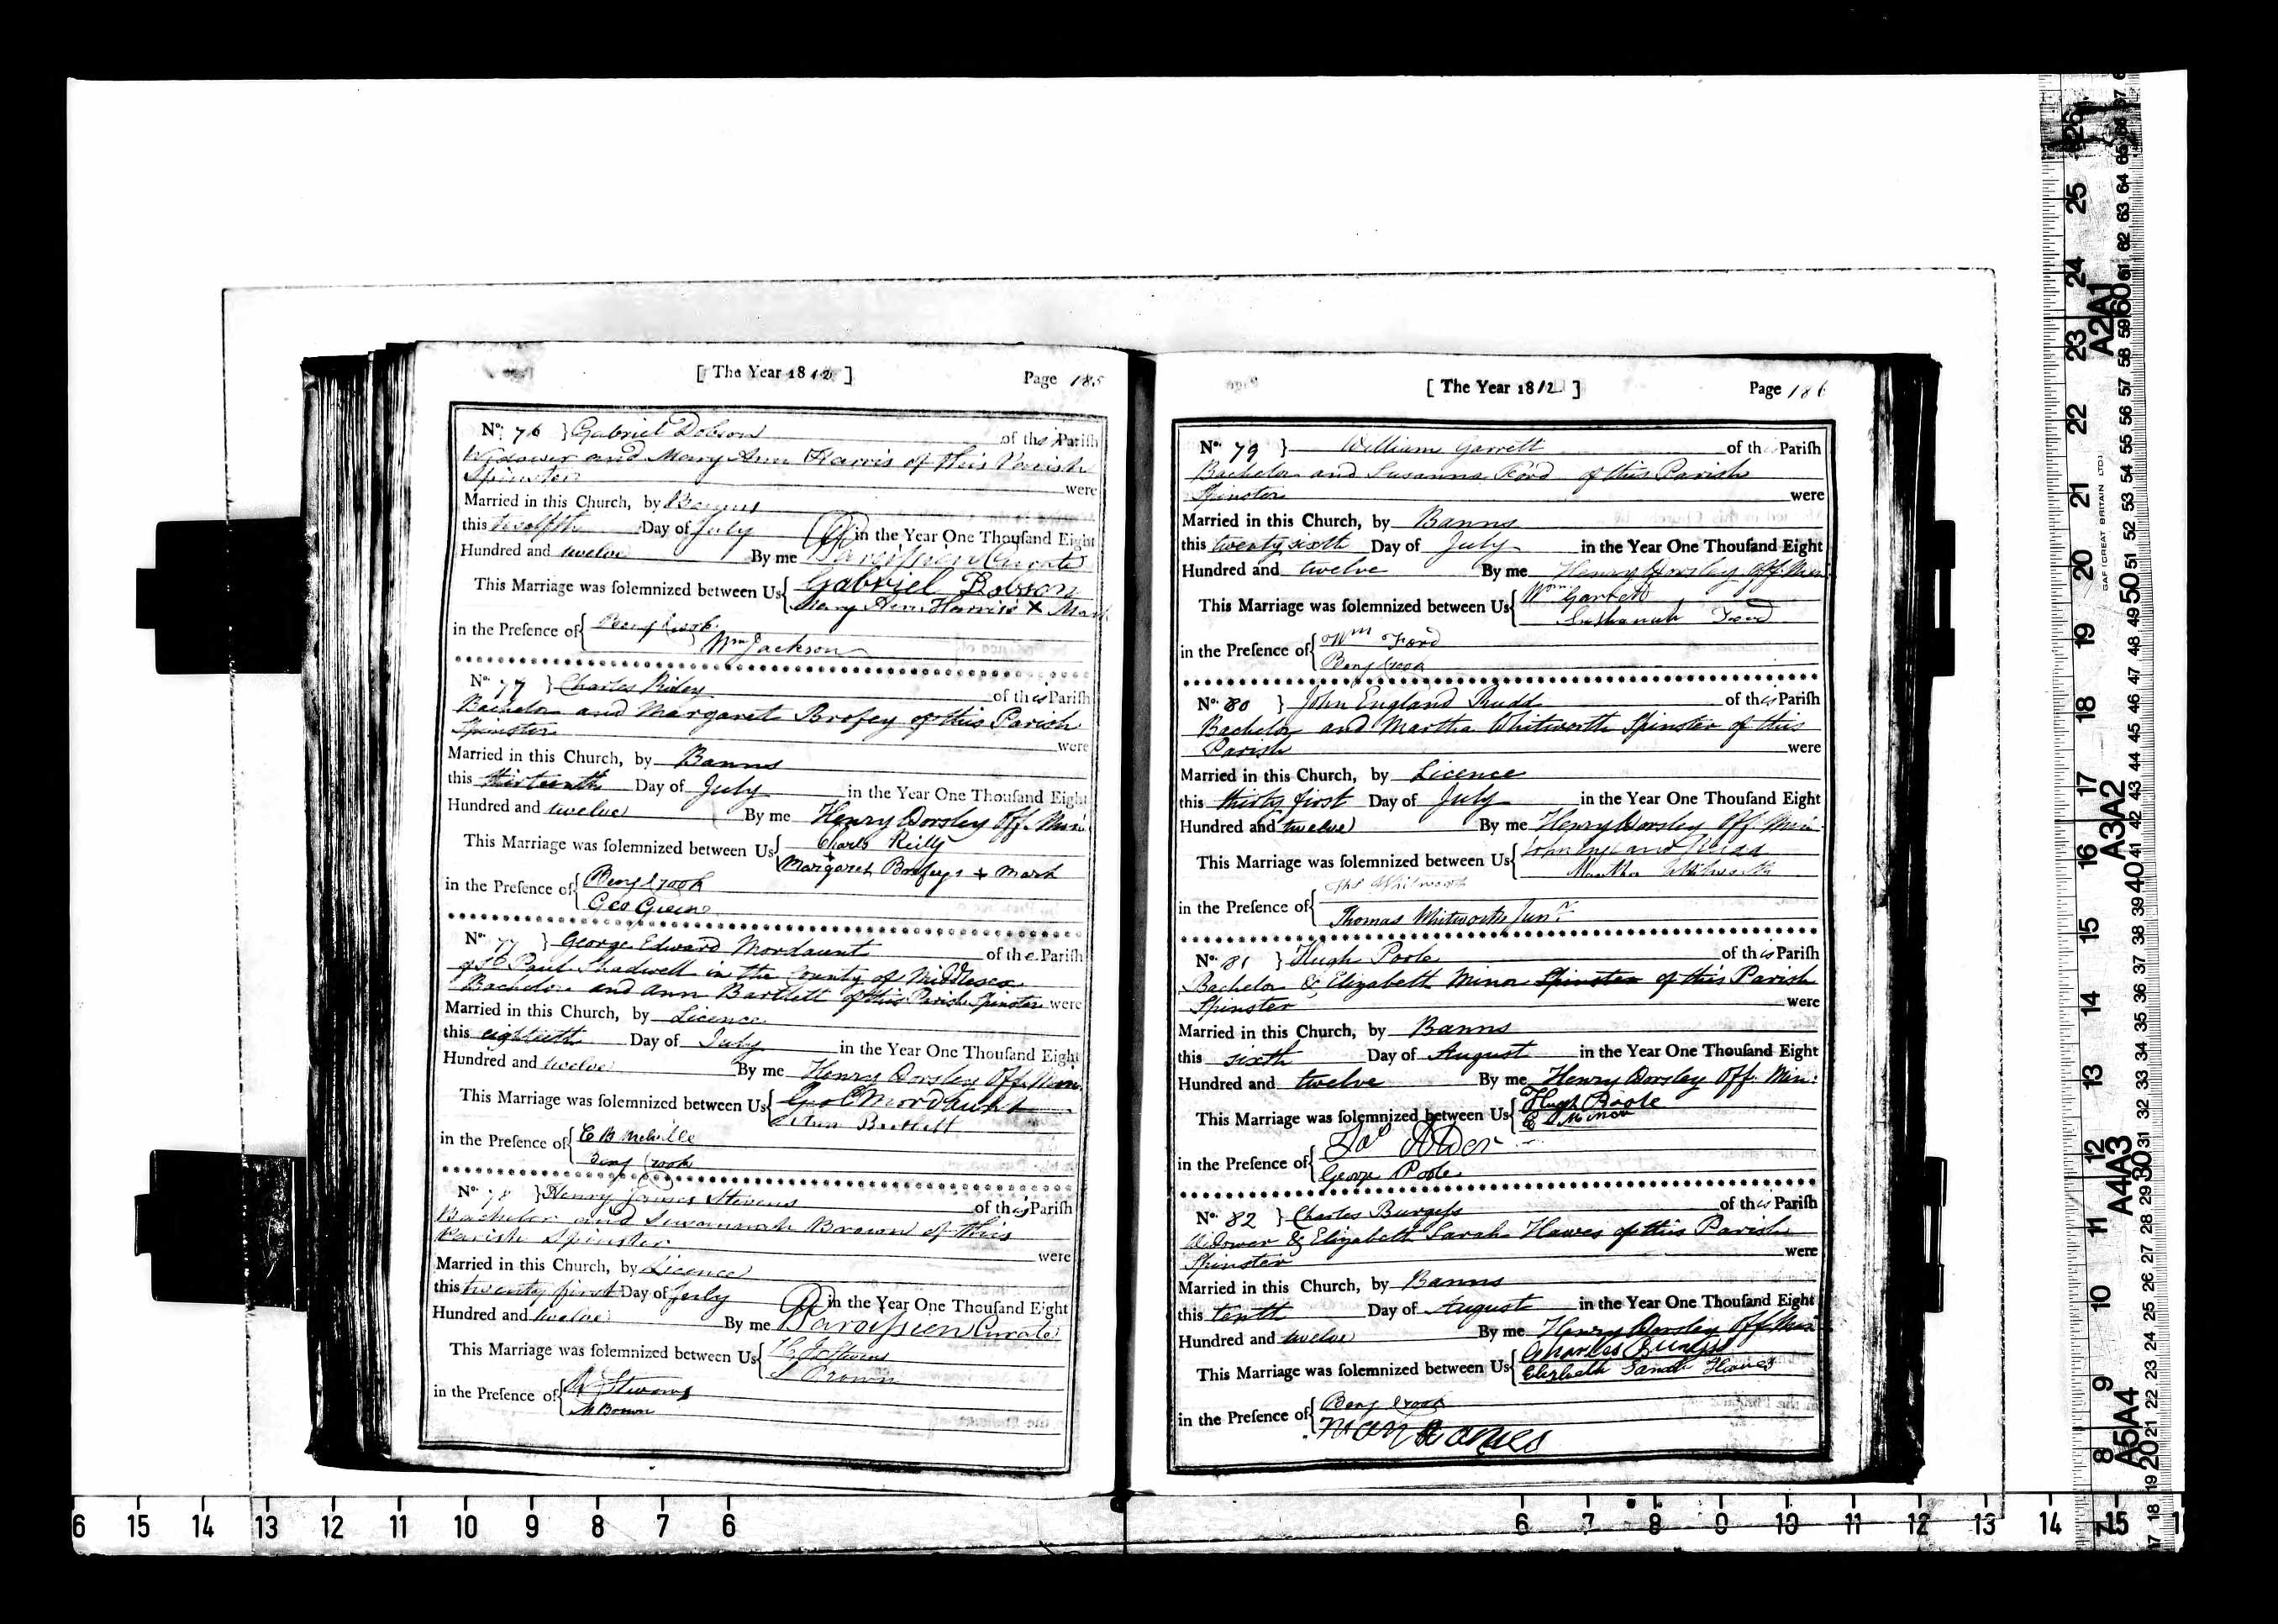 [ The Year 1812 ] Page 185
No. 76 } Gabriel Dobson of this Parish
Widower and Mary Ann Harris of this Parish
Spinster were
Married in this Church, by Banns
this twelfth Day of July in the Year One Thouſand Eight
Hundred and twelve By me Curate
This Marriage was ſolemnized between Us { Gabriel Dobson
Mary Ann Harris X Mark
in the Preſence of { Benj Crook
Wm Jackson
No. 77 } Charles Riley of this Pariſh
Bachelor and Margaret Brofey of this Parish
Spinster were
Married in this Church, by Banns
this thirteenth Day of July in the Year One Thouſand Eight
Hundred and twelve By me Henry Dorsley Off. Min.
This Marriage was ſolemnized between Us { Charls Reilly
Margaret Brofey + Mark
in the Preſence of { Benj Crook
Geo Green
No. 77 } George Edward Mordaunt of the Pariſh
of St Paul Shadwell in the County of Middlesex
Bachelor and Ann Bartlett of this Parish Spinster were
Married in this Church, by Licence
this eightieth Day of July in the Year One Thouſand Eight
Hundred and twelve By me Henry Dorsley Off. Min.
This Marriage was ſolemnized between Us { Geo E Mordaunt
Ann Bartlett
in the Preſence of { E B Melville
Benj Crook
No. 78 } Henry James Stevens of this Pariſh
Bachelor and Susannah Brown of this
Parish Spinster were
Married in this Church, by Licence
this twenty first Day of July in the Year One Thouſand Eight
Hundred and twelve By me Curate
This Marriage was ſolemnized between Us { H J Stevens
S Brown
in the Preſence of { Stevens
M Brown
[ The Year 1812 ] Page 186
No. 79 } William Garrett of this Pariſh
Bachelor and Susanna Ford of this Parish
Spinster were
Married in this Church, by Banns
this twenty sixth Day of July in the Year One Thouſand Eight
Hundred and twelve By me Henry Dorsley Off. Min.
This Marriage was ſolemnized between Us { Wm Garrett
Sushanah Ford
in the Preſence of { Wm Ford
Benj Crook
No. 80 } John England Rudd of this Pariſh
Bachelor and Martha Whitworth Spinster of this
Parish were
Married in this Church, by Licence
this thirty first Day of July in the Year One Thouſand Eight
Hundred and twelve By me Henry Dorsley Off. Min.
This Marriage was ſolemnized between Us { John England Rudd
Martha Whitworth
in the Preſence of { Whitworth
Thomas Whitworth Junr
No. 81 } Hugh Poole of this Pariſh
Bachelor & Elizabeth Minor Spinster of this Parish
Spinster were
Married in this Church, by Banns
this sixth Day of August in the Year One Thouſand Eight
Hundred and twelve By me Henry Dorsley Off. Min.
This Marriage was ſolemnized between Us { Hugh Poole
E Minor
in the Preſence of {
George Poole
No. 82 } Charles Burgeſs of this Pariſh
Widower & Elizabeth Sarah Hawes of this Parish
Spinster were
Married in this Church, by Banns
this tenth Day of August in the Year One Thouſand Eight
Hundred and twelve By me Henry Dorsley Off. Min.
This Marriage was ſolemnized between Us { Charles Burgess
Elizbeth Sarah Hawes
in the Preſence of { Benj Crook